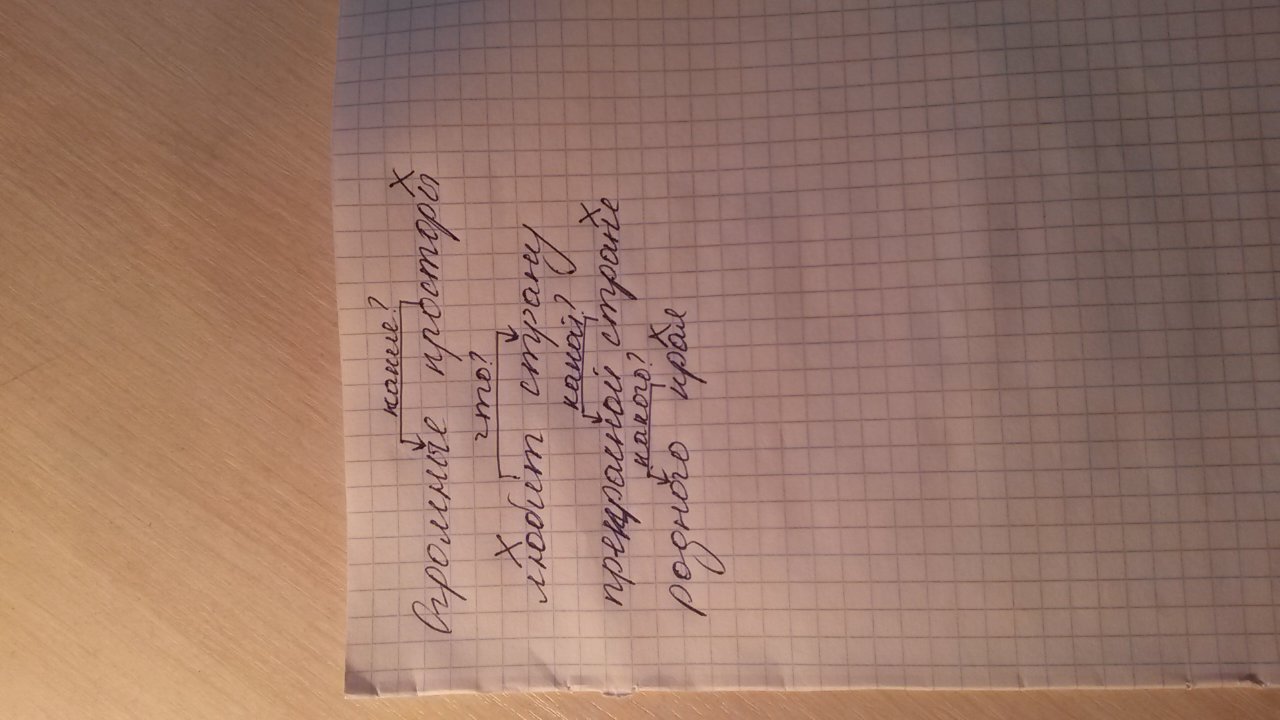 какие?
Огромные просторы
х
что?
х
любит страну
какой?
х
прекрасной стране
какого?
х
родного края